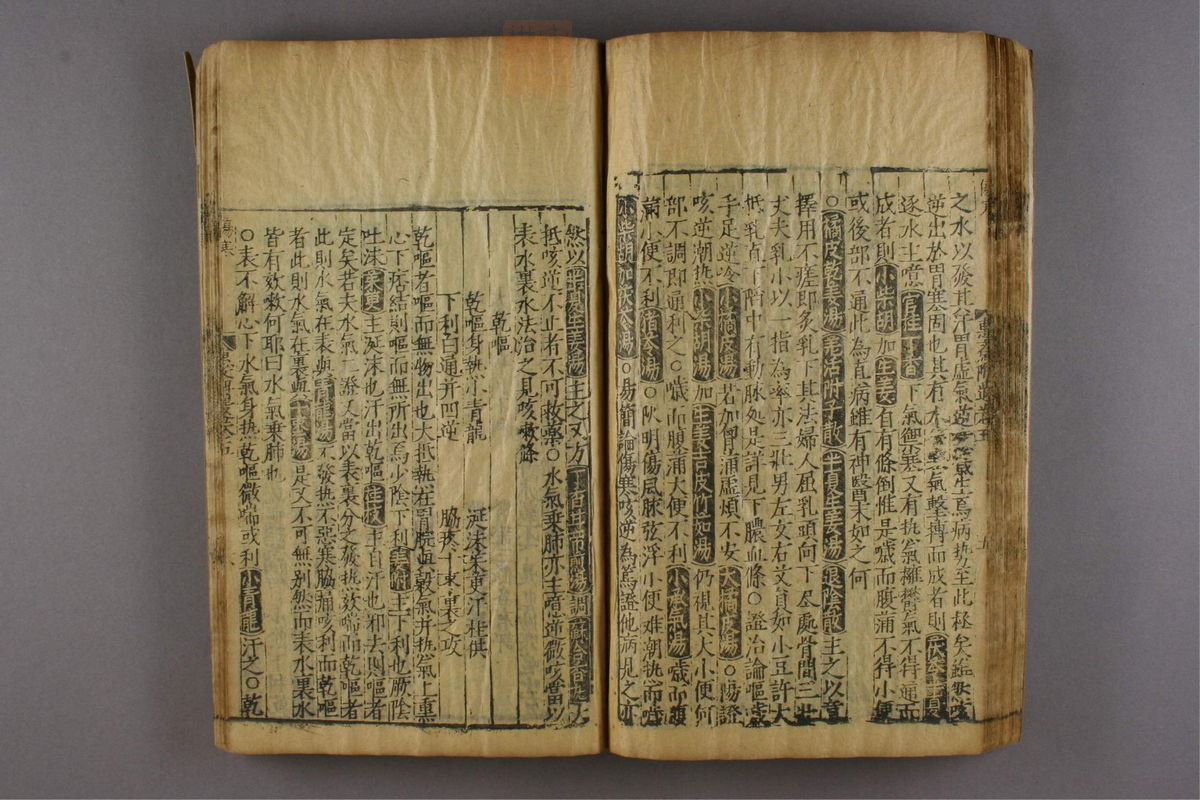 之水以發其汗胃虛氣逆
逆出於胃寒固也其有水氣擊搏而成者則茯苓半夏
逐水主噫官桂丁香下氣禦寒又有热氣擁欝氣不得通而
成者則小柴胡加生姜自有條倒惟是噦而腹蒲不得小便
或後部不通此為真病雖有神醫未如之何
○橘皮乾姜湯羌活附子散半夏生姜湯退陰散主之以意
擇用不瘥即炙乳下其法婦人屈乳頭向下尽處骨間三壯
丈夫乳小以一指為率亦三壯男左女右艾負如小豆許大
抵乳直下䏚中有動脉处是詳見下膿血條○證治論嘔
手足逆冷小橘皮湯若加胃涌虛煩不安大橘皮湯○陽證
咳逆潮热小柴胡湯加生姜吉皮竹茹湯仍視其大小便何
部不調即通利之○噦而腹蒲大便不利小承氣湯噦而腹
蒲小便不利猪苓湯○阳明傷风脉弦浮小便难潮热而噦
小柴胡加茯苓湯○易簡論傷寒咳逆為篤證他病見之亦
然以半夏生姜湯主之又方丁香柿蒂湯調蘇合香丸大
抵咳逆不止者不可救藥○水氣乗肺亦主噫逆微咳當以
表水裏水法治之見咳嗽條
乾嘔
乾嘔身热小青龍 涎沫朱萸汗桂供
下利白通并凹逆 脇疼十棗裏之攻
乾嘔者嘔而無物出也大抵热在胃脘與穀氣并热氣上熏
心下痞結則嘔而無所出焉少陰下利姜附主下利也厥陰
吐沫茱萸主涎沫也汗出乾嘔桂枝主自汗也邪去則嘔者
定矣若夫水氣二證又當以表裏分之發热欬喘而乾嘔者
此則水氣在表與青龍湯不發热不惡寒脇痛咳利而乾嘔
者此則水氣在裏與十棗湯是又不可無别然而表水裏水
皆有欬嗽何耶曰水氣乗肺也
○表不解心下水氣身热乾嘔微喘或利小青龍汗之○乾